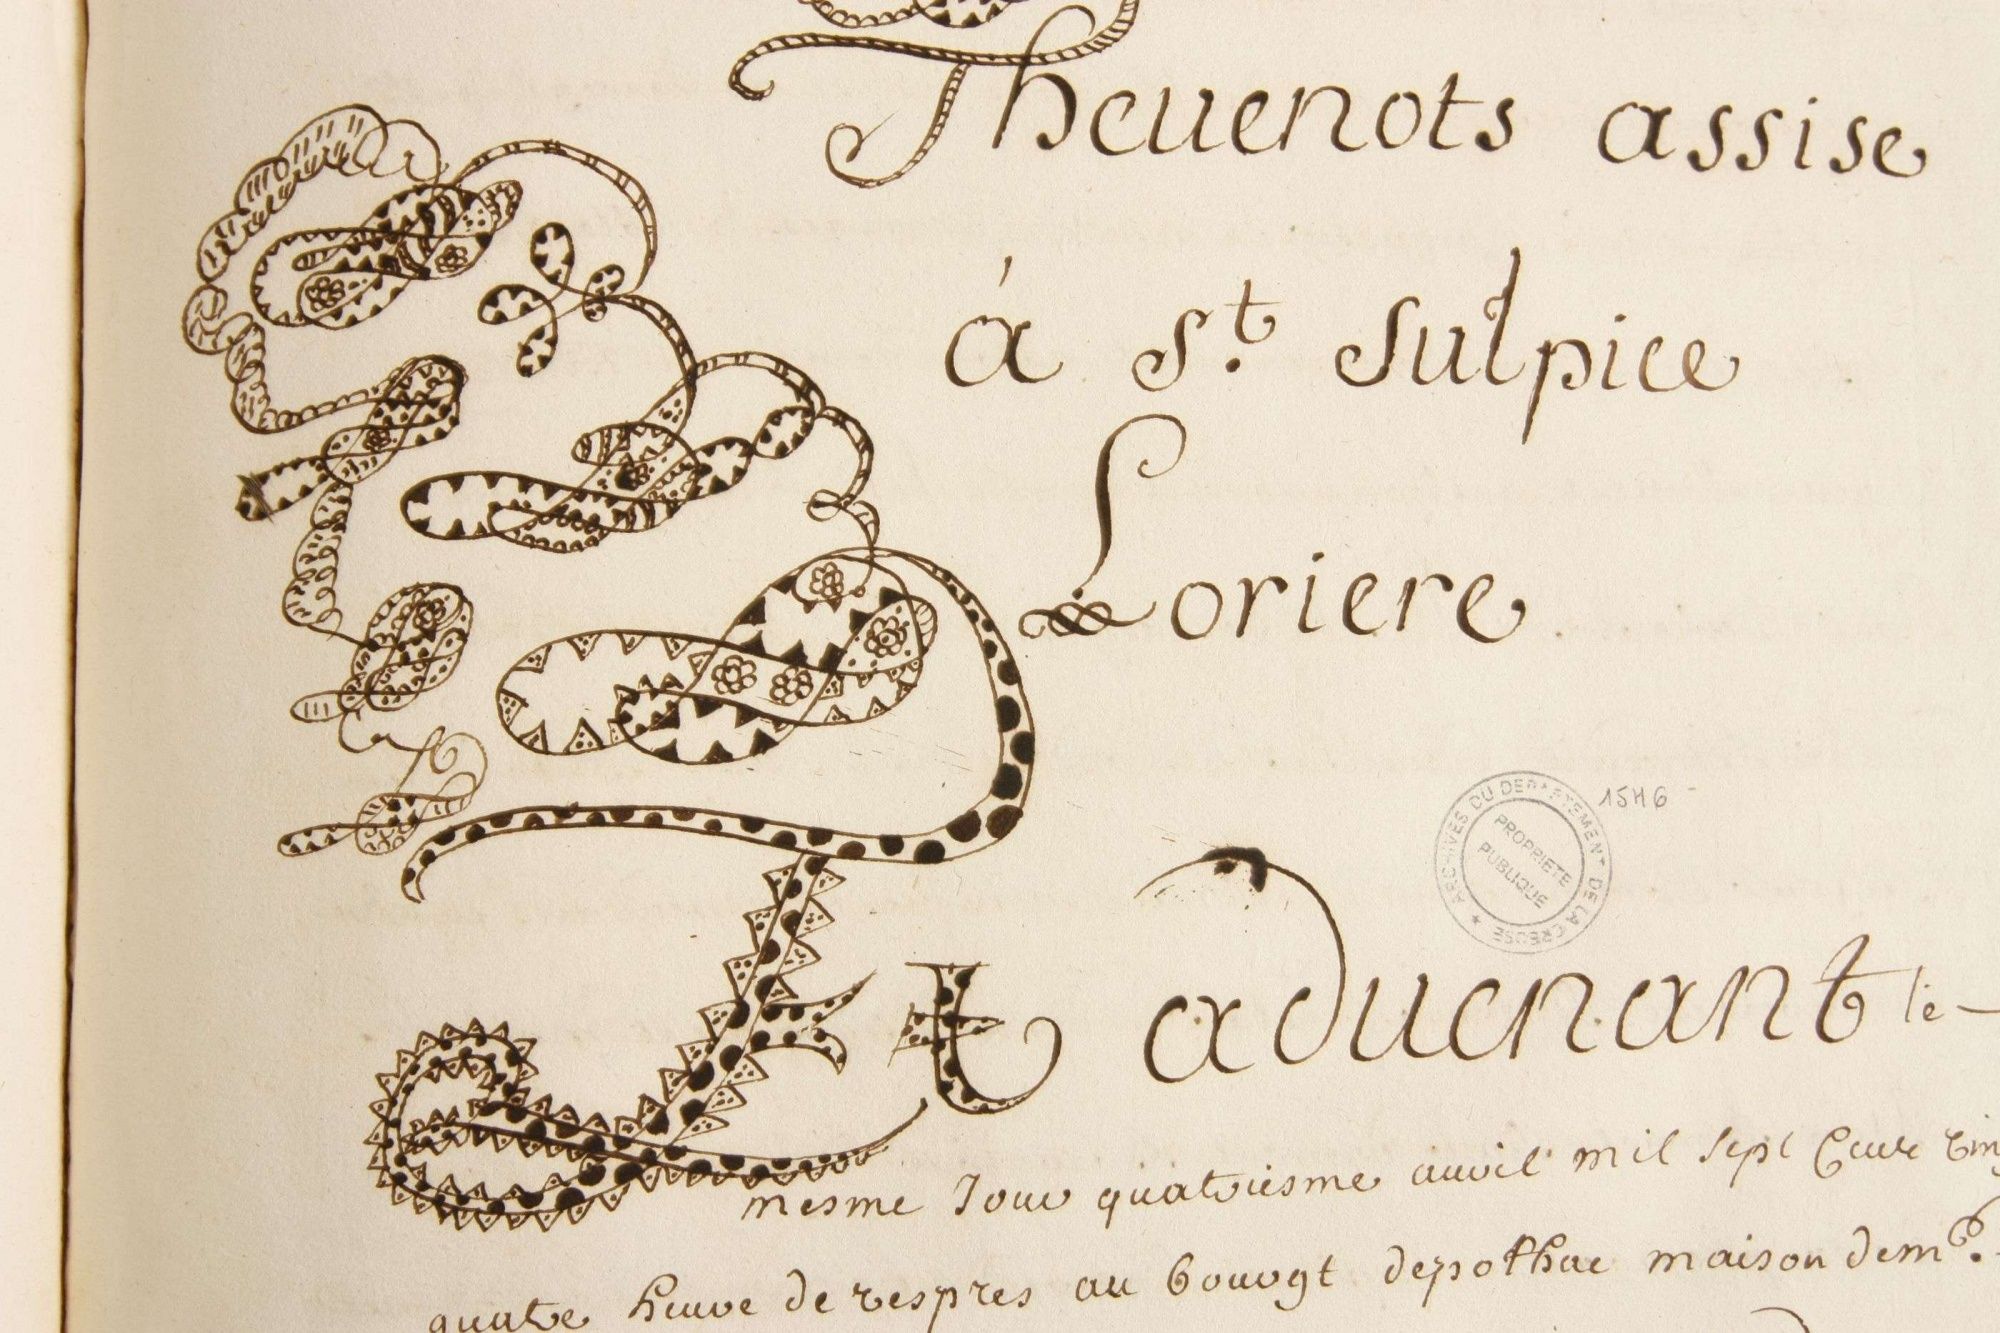 Theuenots assise
à s.t sulpice
Loriere
15H6
ARCHIVES DU DEPARTEMENT DE LA CREUSE ★
PROPRIETE PUBLIQUE
Et aduenant le-
mesme Jour quatriesme auril mil sept Cent
quatre heure de vespres au bourgt depothac maison dem